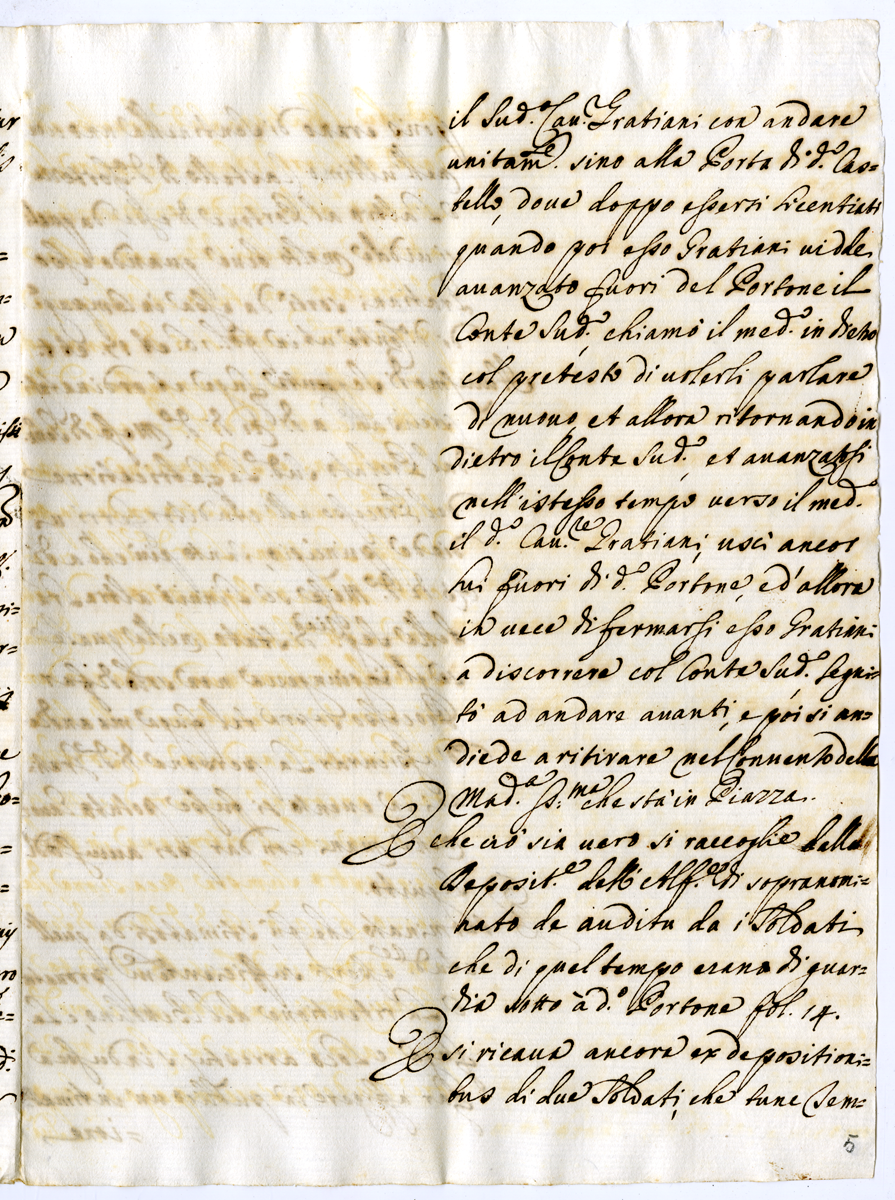 il Sud.º Cau.re Gratiani con andare
unitam.e sino alla Porta di d.º Cas=
tello, doue doppo essersi licentiati
quando poi esso Gratiani uidde
auanzato fuori del Portone il
Conte Sud.º chiamò il med.º in dietro
col pretesto di uolerli parlare
di nuouo, et allora ritornando in
dietro il Conte Sud.º, et auanzatosi
nell'istesso tempo verso il med.º
il d.º Cau.re Gratiani, uscì ancor
lui fuori di d.º Portone, ed'allora
in uece di fermarsi esso Gratiani
a discorrere col Conte Sud.º segui=
tò ad andare auanti, e poi si an=
diede a ritirare nel Conuento della
Mad.a S.ma che stà in Piazza.
E che ciò sia uero si raccoglie dalla
Deposit.e dell'Alf.re di sopranomi=
nato de auditu da i Soldati
che di quel tempo erano di guar=
dia sotto à d.º Portone fol. 14.
E si ricaua ancora ex deposition=
bus di due Soldati, che tunc Sem=
5